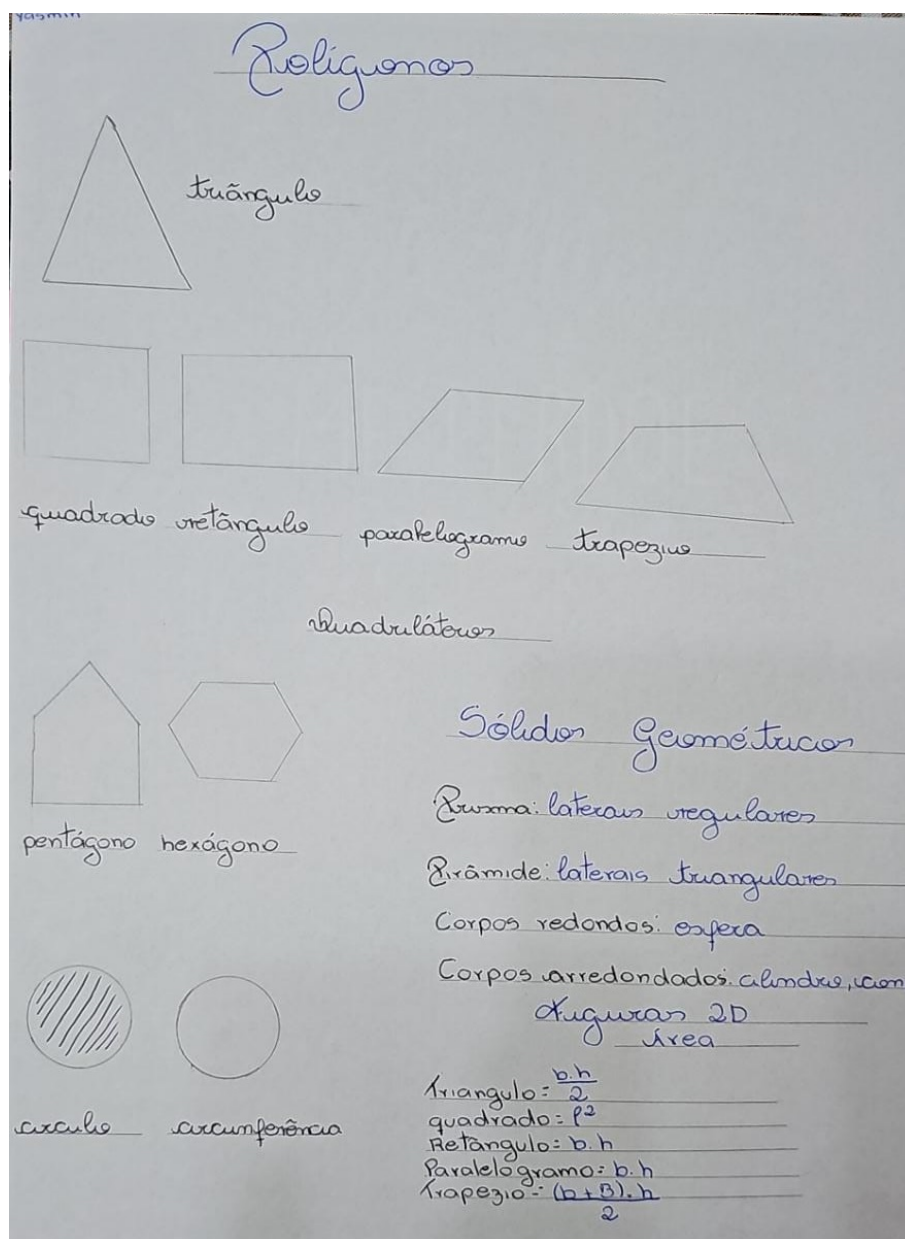 Yasmin
Polígonos
triângulo
quadrado retângulo paralelogramo trapézio
Quadriláteros
pentágono hexágono
Sólidos Geométricos
Prisma: laterais regulares
Pirâmide: laterais triangulares
Corpos redondos: esfera
Corpos arredondados: cilindro, con
Figuras 2D
Área
círculo circunferência
Triangulo = b.h/2
quadrado = l²
Retângulo = b.h
Paralelogramo = b.h
Trapezio = (b+B).h/2